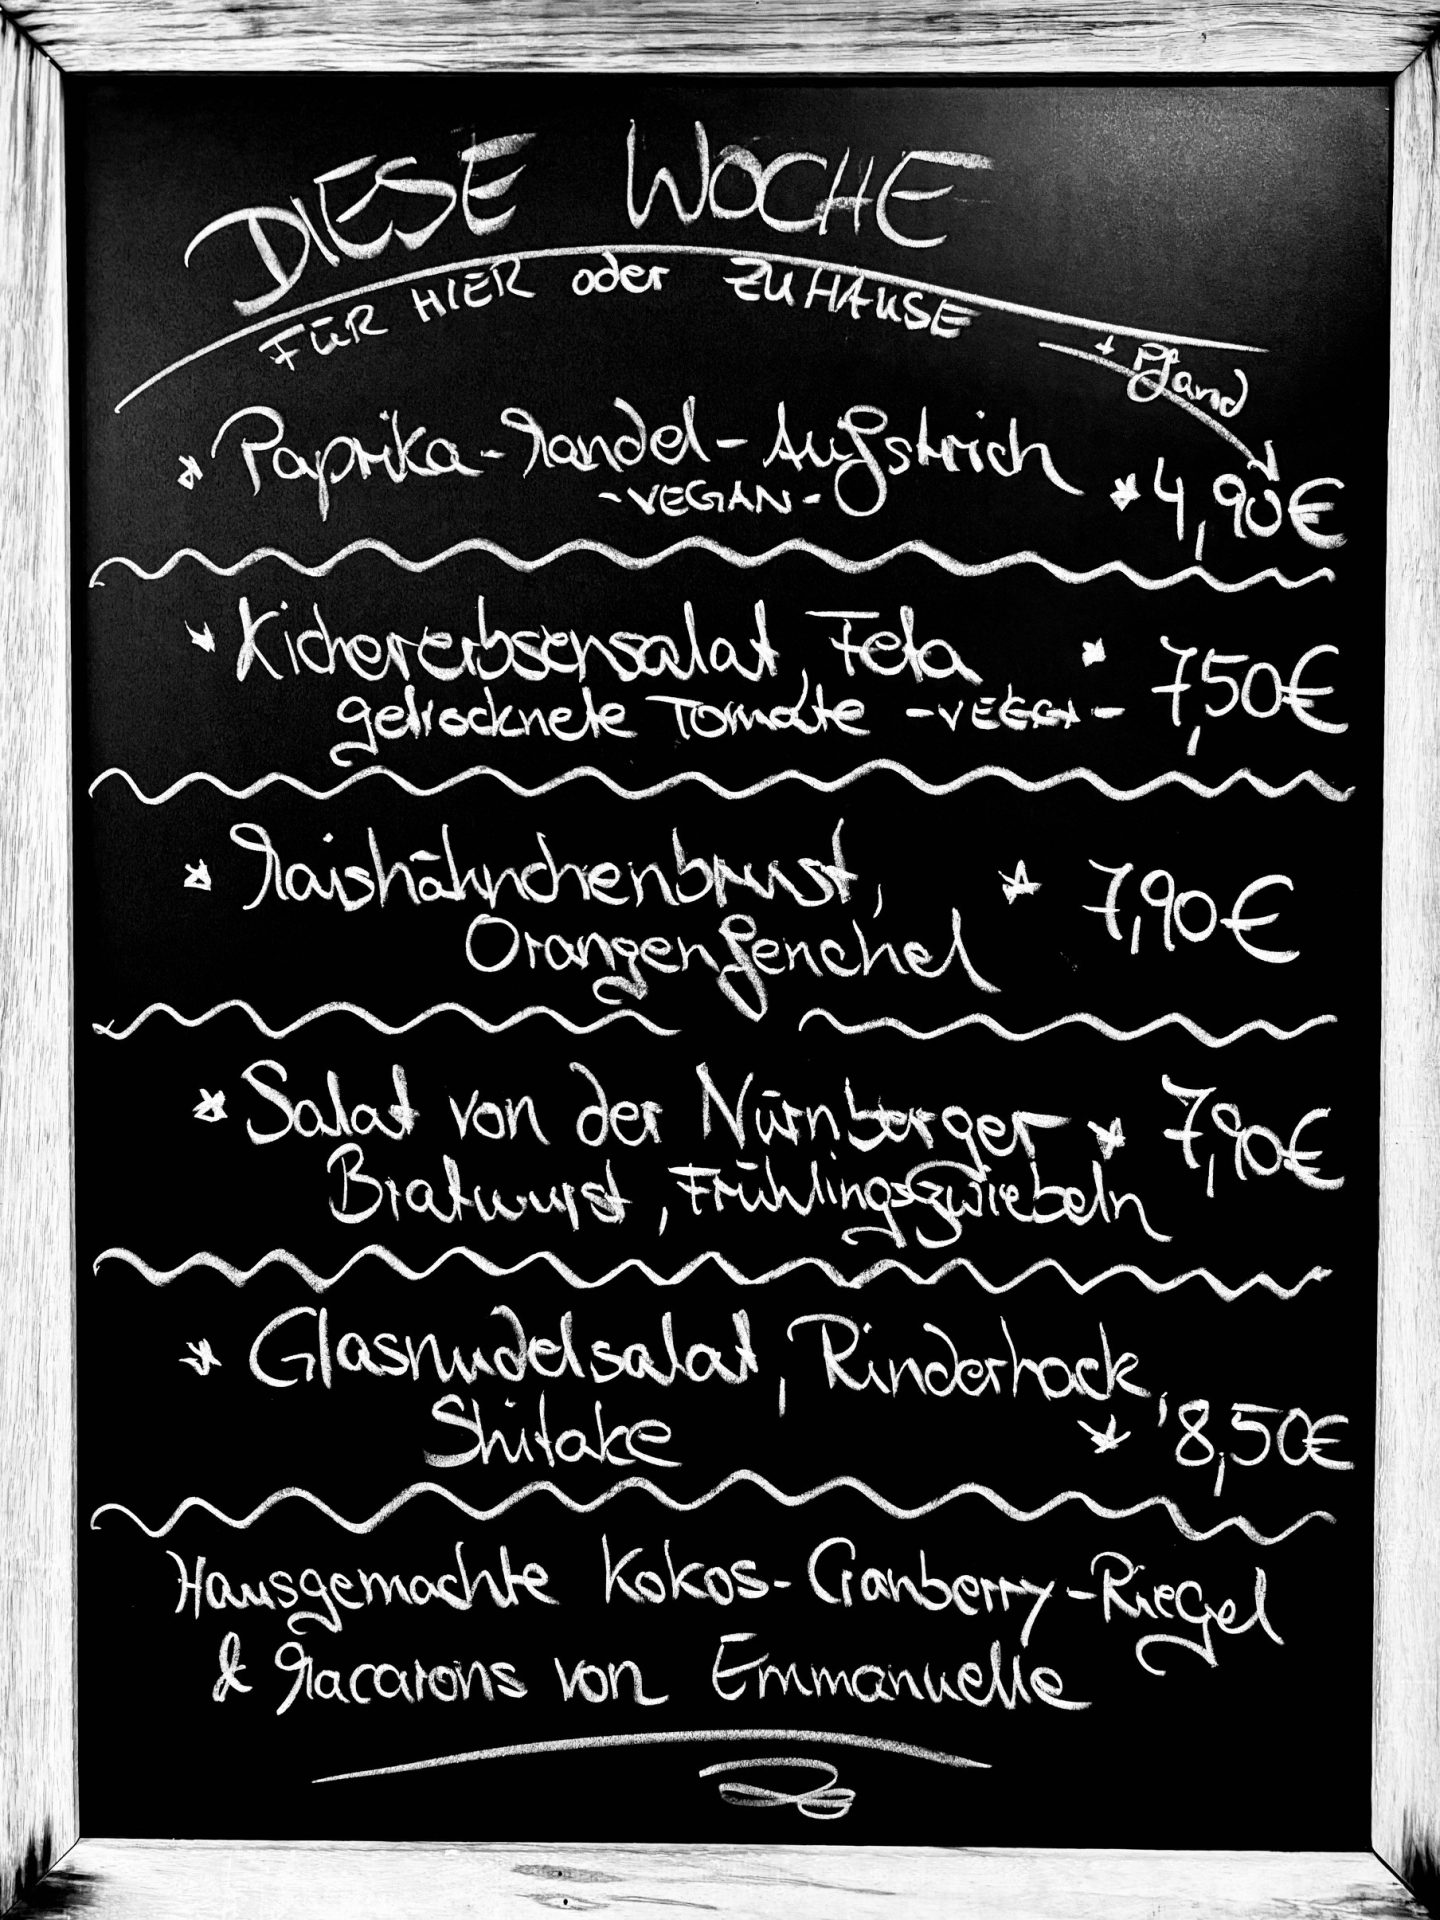 DIESE WOCHE
FÜR HIER oder ZUHAUSE
+ Pfand
* Paprika-Mandel-Aufstrich * 4,90€
-VEGAN-
* Kichererbsensalat, Feta * 7,50€
getrocknete Tomate -VEGGI-
* Maishähnchenbrust, * 7,90€
Orangenfenchel
* Salat von der Nürnberger * 7,90€
Bratwurst, Frühlingszwiebeln
* Glasnudelsalat, Rinderhack,
Shitake * 8,50€
Hausgemachte Kokos-Cranberry-Riegel
& Macarons von Emmanuelle